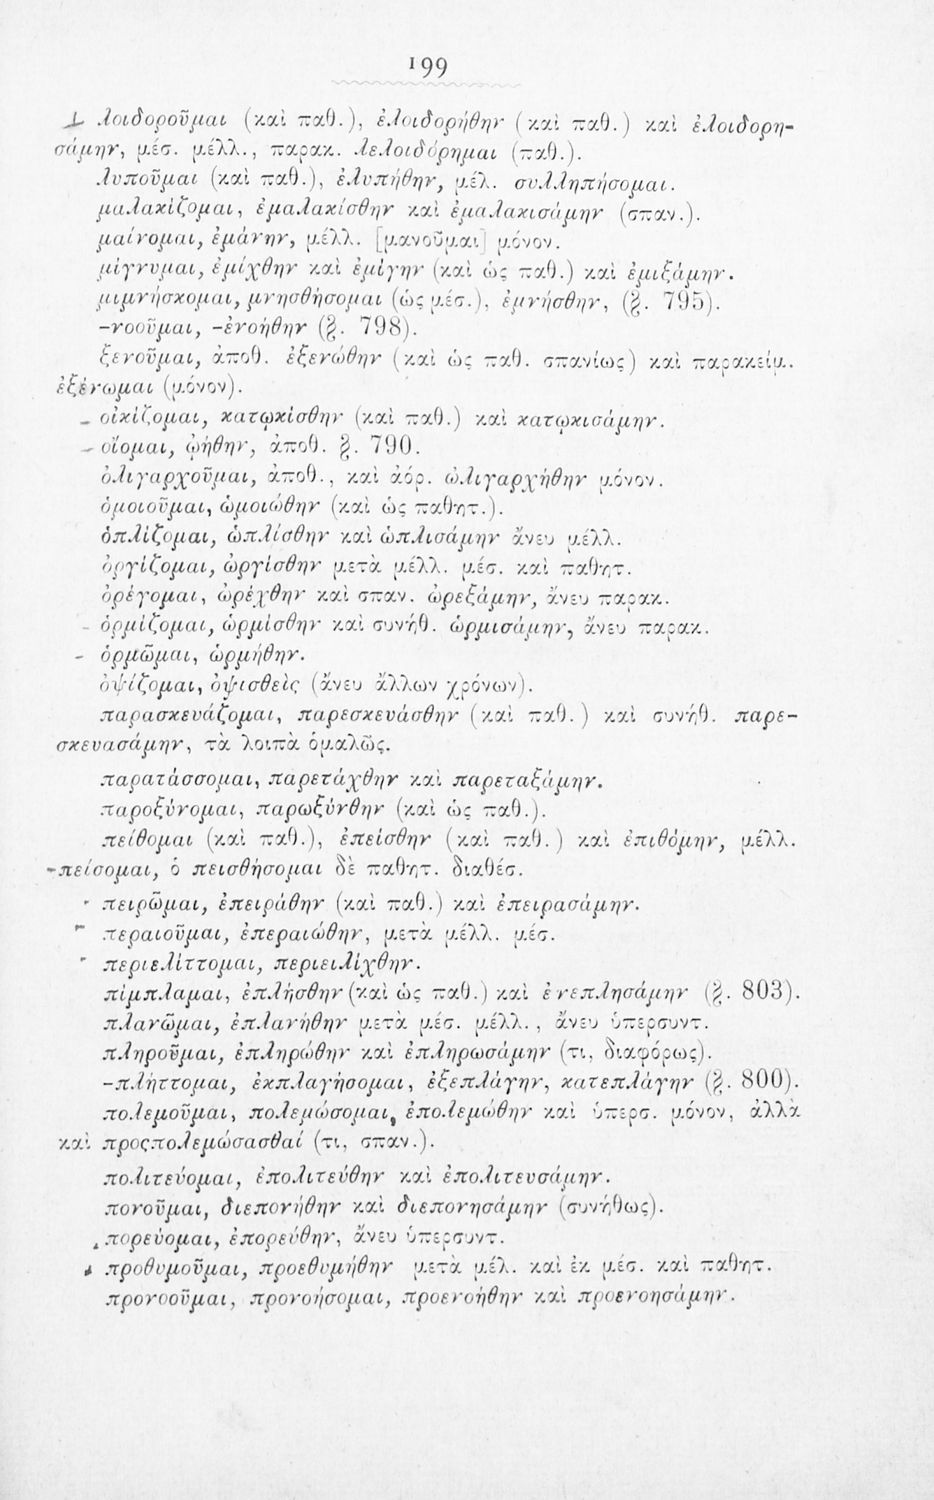 199
λοιδοροῦμαι (καὶ παθ.), ἐλοιδορήθην (καὶ παθ.) καὶ ἐλοιδορη-
σάμην, μέσ. μέλλ., παρακ. λελοιδόρημαι (παθ.).
λυποῦμαι (καὶ παθ.), ἐλυπήθην, μέλ. συλληπήσομαι.
μαλακίζομαι, ἐμαλακίσθην καὶ ἐμαλακισάμην (σπαν.).
μαίνομαι, ἐμάνην, μέλλ. [μανοῦμαι] μόνον.
μίγνυμαι, ἐμίχθην καὶ ἐμίγην (καὶ ὡς παθ.) καὶ ἐμιξάμην.
μιμνήσκομαι, μνησθήσομαι (ὡς μέσ.), ἐμνήσθην, (§. 795).
-νοοῦμαι, -ἐνοήθην (§. 798).
ξενοῦμαι, ἀποθ. ἐξενώθην (καὶ ὡς παθ. σπανίως) καὶ παρακείμ.
ἐξένωμαι (μόνον).
οἰκίζομαι, κατῳκίσθην (καὶ παθ.) καὶ κατῳκισάμην.
οἴομαι, ᾠήθην, ἀποθ. §. 790.
ὀλιγαρχοῦμαι, ἀποθ., καὶ ἀόρ. ὠλιγαρχήθην μόνον.
ὁμοιοῦμαι, ὡμοιώθην (καὶ ὡς παθητ.).
ὁπλίζομαι, ὡπλίσθην καὶ ὡπλισάμην ἄνευ μέλλ.
ὀργίζομαι, ὠργίσθην μετὰ μέλλ. μέσ. καὶ παθητ.
ὀρέγομαι, ὠρέχθην καὶ σπαν. ὠρεξάμην, ἄνευ παρακ.
ὁρμίζομαι, ὡρμίσθην καὶ συνήθ. ὡρμισάμην, ἄνευ παρακ.
ὁρμῶμαι, ὡρμήθην.
ὀψίζομαι, ὀψισθεὶς (ἄνευ ἄλλων χρόνων).
παρασκευάζομαι, παρεσκευάσθην (καὶ παθ.) καὶ συνήθ. παρε-
σκευασάμην, τὰ λοιπὰ ὁμαλῶς.
παρατάσσομαι, παρετάχθην καὶ παρεταξάμην.
παροξύνομαι, παρωξύνθην (καὶ ὡς παθ.).
πείθομαι (καὶ παθ.), ἐπείσθην (καὶ παθ.) καὶ ἐπιθόμην, μέλλ.
πείσομαι, ὁ πεισθήσομαι δὲ παθητ. διαθέσ.
πειρῶμαι, ἐπειράθην (καὶ παθ.) καὶ ἐπειρασάμην.
περαιοῦμαι, ἐπεραιώθην, μετὰ μέλλ. μέσ.
περιελίττομαι, περιειλίχθην.
πίμπλαμαι, ἐπλήσθην (καὶ ὡς παθ.) καὶ ἐνεπλησάμην (§. 803).
πλανῶμαι, ἐπλανήθην μετὰ μέσ. μέλλ., ἄνευ ὑπερσυντ.
πληροῦμαι, ἐπληρώθην καὶ ἐπληρωσάμην (τι, διαφόρως).
-πλήττομαι, ἐκπλαγήσομαι, ἐξεπλάγην, κατεπλάγην (§. 800).
πολεμοῦμαι, πολεμώσομαι, ἐπολεμώθην καὶ ὑπερσ. μόνον, ἀλλὰ
καὶ προςπολεμώσασθαί (τι, σπαν.).
πολιτεύομαι, ἐπολιτεύθην καὶ ἐπολιτευσάμην.
πονοῦμαι, διεπονήθην καὶ διεπονησάμην (συνήθως).
πορεύομαι, ἐπορεύθην, ἄνευ ὑπερσυντ.
προθυμοῦμαι, προεθυμήθην μετὰ μέλ. καὶ ἐκ μέσ. καὶ παθητ.
προνοοῦμαι, προνοήσομαι, προενοήθην καὶ προενοησάμην.